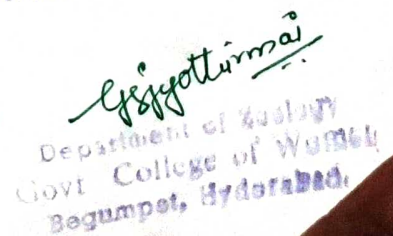 GsJyothirmai
Department of Zoology
Govt College of Women
Begumpet, Hyderabad.